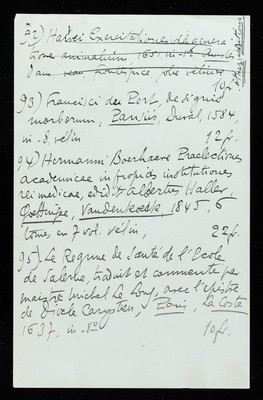 92) Harvei Exercitationes de genera
tione animalium, 1651, in-12
dans
10fr.
93) Francisci du Port, de signis
morborum, Parisiis, Duval, 1584,
in-8, vélin 12 fr.
94) Hermanni Boerhaave Praelectiones
academicae in propids institutiones
rei medicae, edidit Albertus Haller,
Goettingae, Vandenhoeck, 1845, 6
tomes, en 7 vol. vélin, 22fr.
95) Le Regime de Santé de l'Ecole
de Salerne, traduit et commenté par
maistre Michel Le Long, avec l'epistre
de Diocle Carystien, Paris, La Coste
1637, in-8o 10fr.